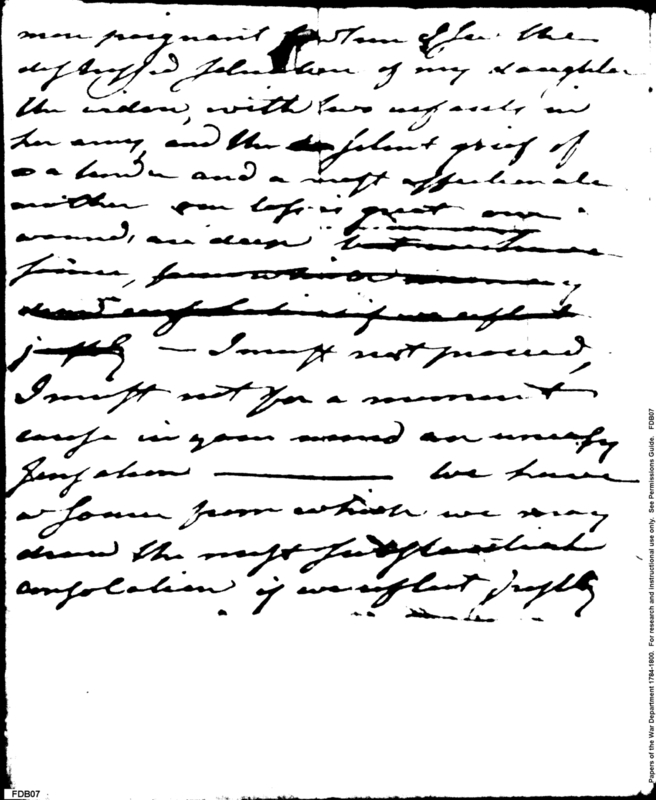 more poignant when I see the
distressed situation of my daughter
the widow, with two infants in
her arms, and the silent grief of
a tender and a most affectionate
mother our loss is great our
wounds are deep
source, from which we may
draw consolation if we reflect
justly — I must not proceed,
I must not for a moment
cause in your mind an uneasy
sensation — We have
a source from which we may
draw the most substantial
consolation if we reflect justly
FDB07
Papers of the War Department 1784-1800. For research and instructional use only. See Permissions Guide. FDB07